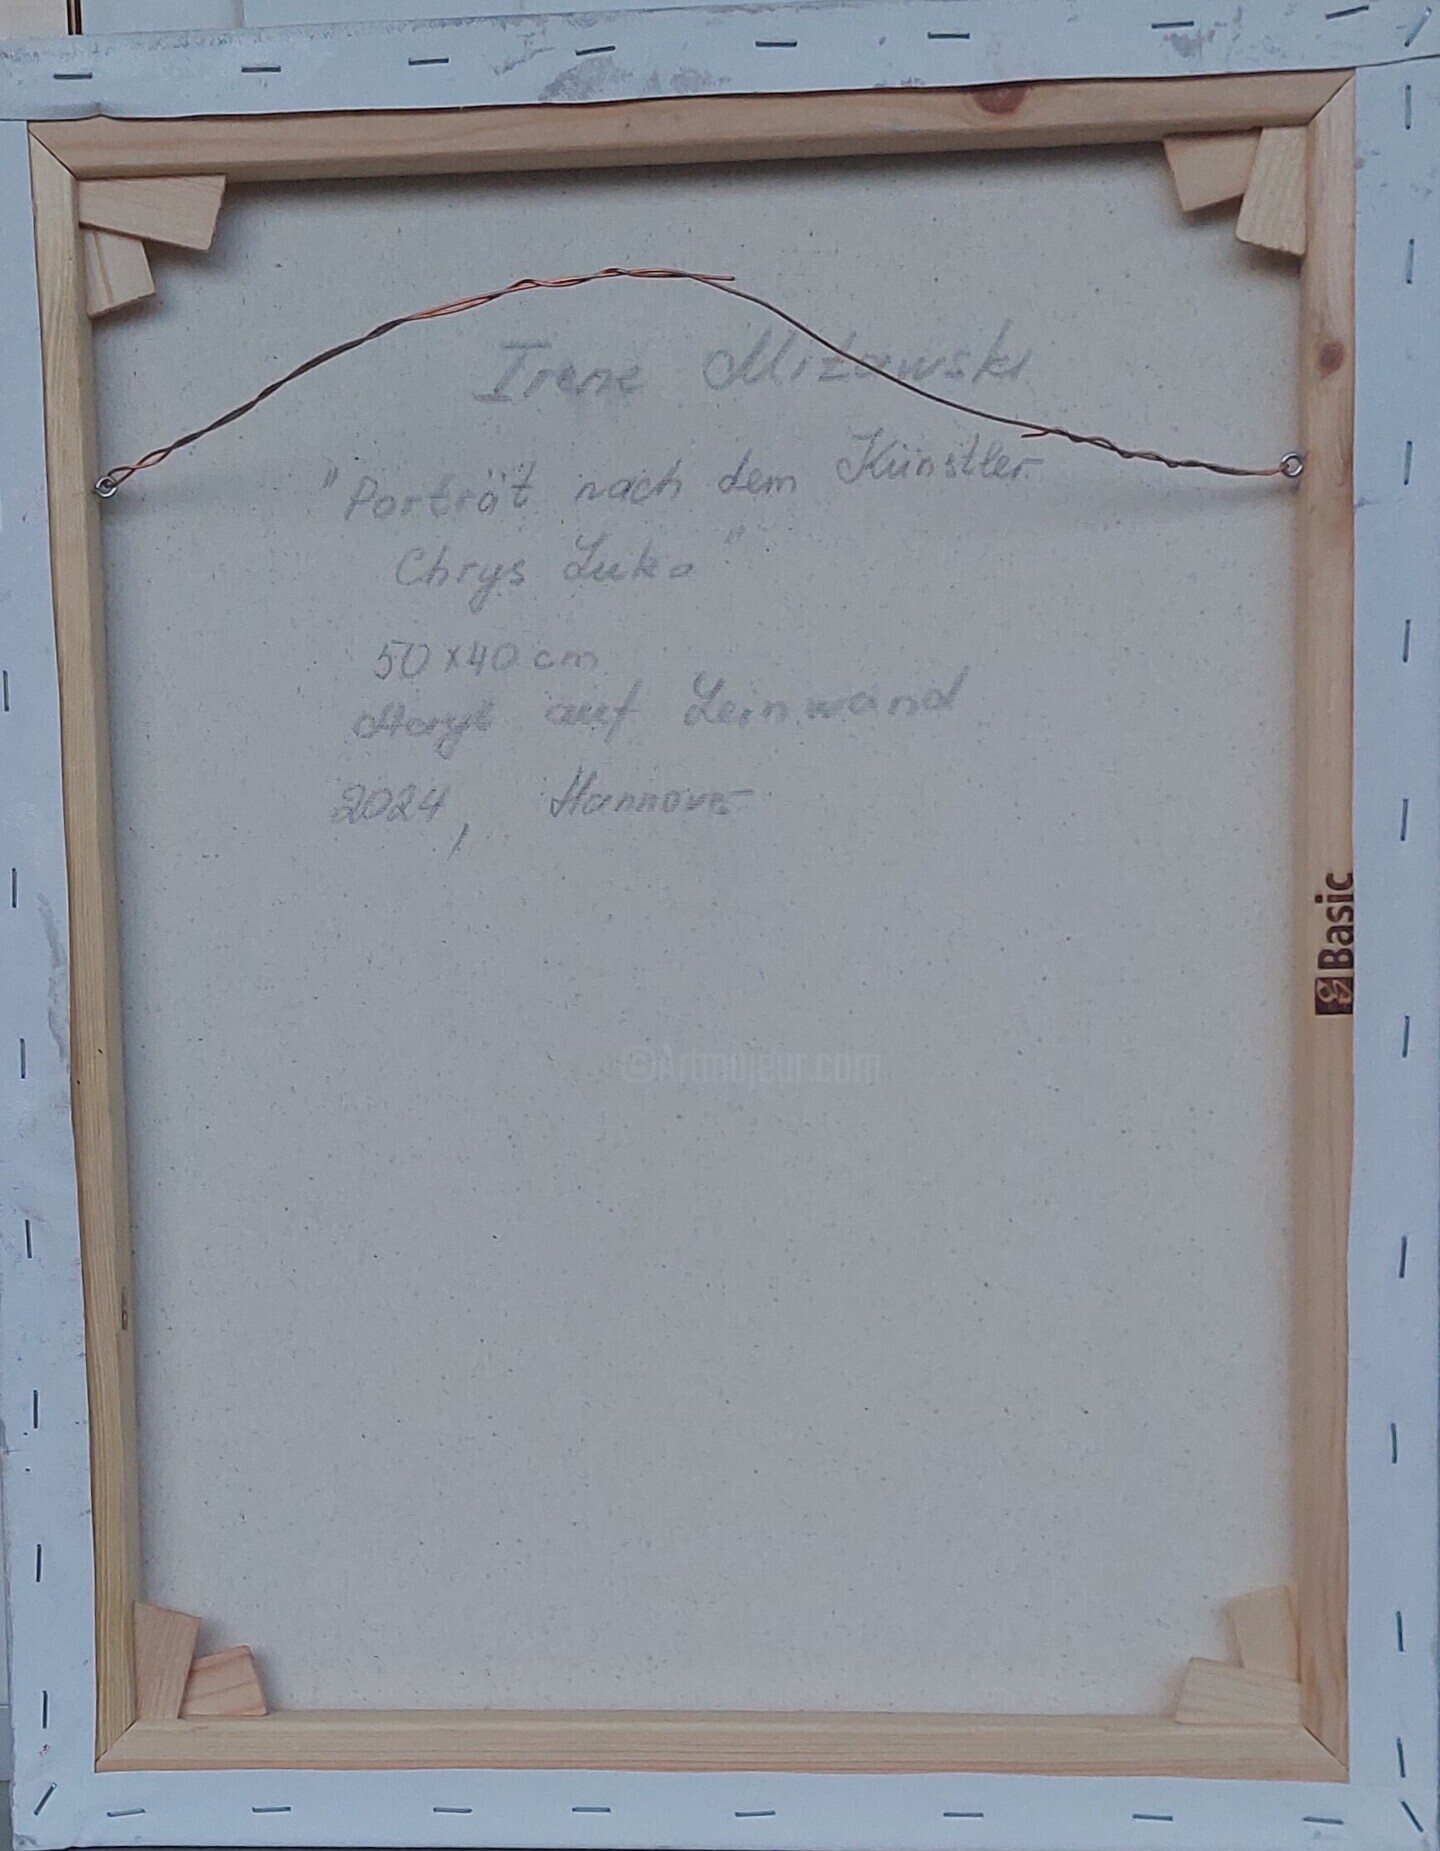 Irene Mizawski
"Porträt nach dem Künstler
Chrys Luka"
50x40 cm
Acryl auf Leinwand
2024, Hannover
Basic
©Artmajeur.com